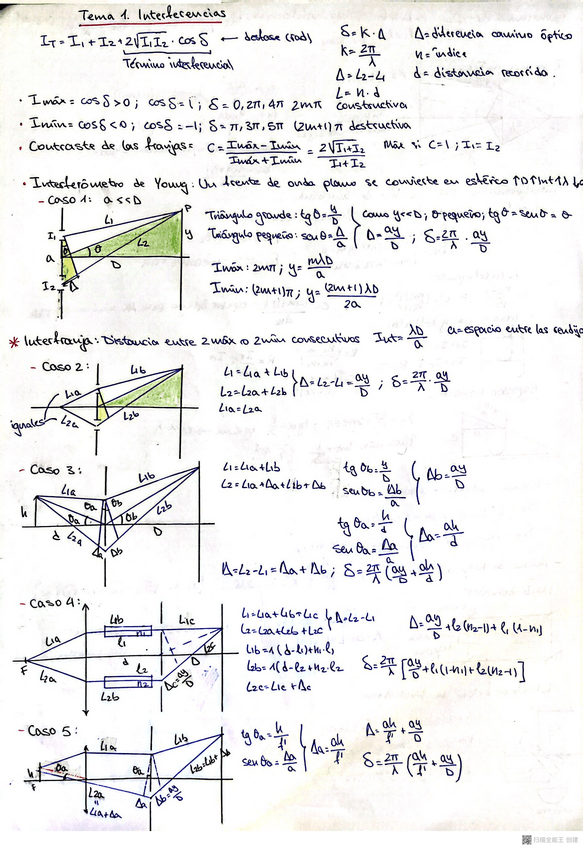 Tema 1. Interferencias
I_T = I₁ + I₂ + 2√(I₁I₂) · cos δ ← desfase (rad)
Término interferencial
δ = K · Δ
K = 2π/λ
Δ = L₂ - L₁
L = n · d
Δ = diferencia camino óptico
n = índice
d = distancia recorrida.
· Imáx = cosδ > 0 ; cosδ = 1 ; δ = 0, 2π, 4π 2mπ constructiva
· Imín = cosδ < 0 ; cosδ = -1 ; δ = π, 3π, 5π (2m+1)π destructiva
· Contraste de las franjas: C = (Imáx - Imín)/(Imáx + Imín) = 2√(I₁+I₂)/(I₁+I₂) Máx si C = 1 ; I₁ = I₂
· Interferómetro de Young: Un frente de onda plano se convierte en esférico ↑D↑Int↑λ
- Caso 1: a << D
L₁
P
I₁
θ
θ
L₂
y
a
D
I₂
Δ
Triángulo grande: tg θ = y/D
Triángulo pequeño: sen θ = Δ/a
como y << D ; θ pequeño; tg θ = sen θ = θ
Δ = ay/D ; δ = 2π/λ · ay/D
Imáx: 2mπ ; y = mλD/a
Imín: (2m+1)π ; y = (2m+1)λD/2a
* Interfranja: Distancia entre 2 máx o 2 mín consecutivos Int = λD/a a = espacio entre las rendijas
- Caso 2:
L₁b
L₁a
iguales
L₂a
L₂b
L₁ = L₁a + L₁b
L₂ = L₂a + L₂b
L₁a = L₂a
Δ = L₂ - L₁ = ay/D ; δ = 2π/λ · ay/D
- Caso 3:
L₁a
L₁b
θa
θb
h
θa
θb
L₂b
d
L₂a
Δa
Δb
D
L₁ = L₁a + L₁b
L₂ = L₁a + Δa + L₁b + Δb
tg θb = y/D
sen θb = Δb/a
Δb = ay/D
tg θa = h/d
sen θa = Δa/a
Δa = ah/d
Δ = L₂ - L₁ = Δa + Δb ; δ = 2π/λ (ay/D + ah/d)
- Caso 4:
L₁b
L₁c
L₁a
l₁
n₁
d
F
L₂a
l₂
n₂
L₂b
D
Δc = ay/D
L₁ = L₁a + L₁b + L₁c
L₂ = L₂a + L₂b + L₂c
Δ = L₂ - L₁
L₁b = 1(d - l₁) + n₁ · l₁
L₂b = 1(d - l₂ + n₂ · l₂
L₂c = L₁c + Δc
Δ = ay/D + l₂(n₂-1) + l₁(1-n₁)
δ = 2π/λ [ay/D + l₁(1-n₁) + l₂(n₂-1)]
- Caso 5:
L₁a
L₁b
h
θa
F
θa
L₂a
"
L₁a + Δa
Δa
Δb = ay/D
L₂b = L₁b + Δb
tg θa = h/f'
sen θa = Δa/a
Δa = ah/f'
Δ = ah/f' + ay/D
δ = 2π/λ (ah/f' + ay/D)
扫描全能王 创建